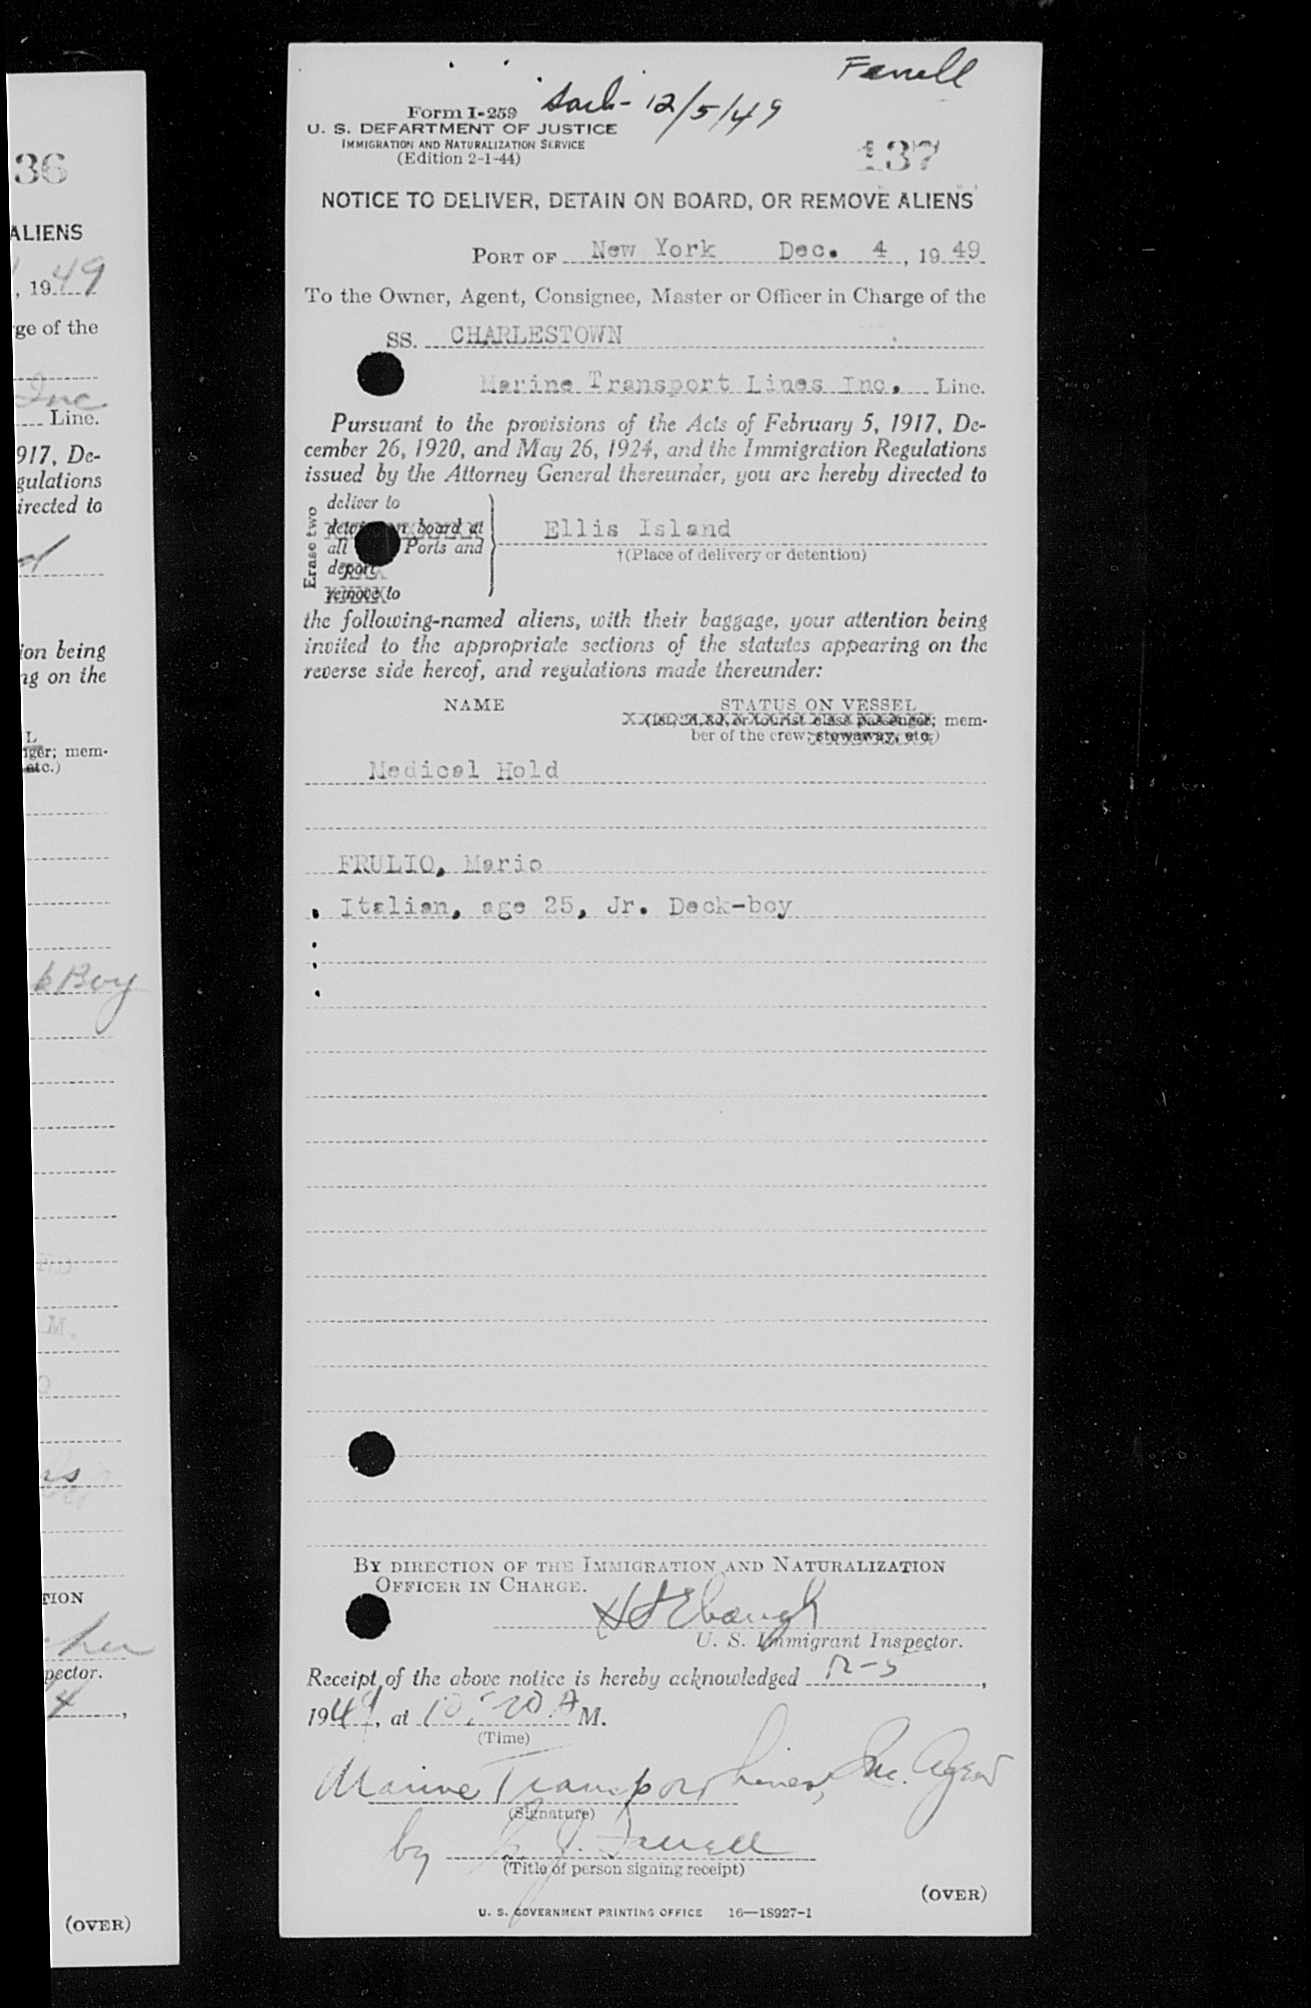 36
ALIENS
, 1949
ge of the
Inc
Line.
917, De-
gulations
irected to
d
ion being
ng on the
L
nger; mem-
etc.)
k Boy
M.
rs
TION
cher
pector.
4,
(OVER)
Farrell
12/5/49
Form I-259
U. S. DEPARTMENT OF JUSTICE
IMMIGRATION AND NATURALIZATION SERVICE
(Edition 2-1-44)
137
NOTICE TO DELIVER, DETAIN ON BOARD, OR REMOVE ALIENS
PORT OF New York Dec. 4, 19 49
To the Owner, Agent, Consignee, Master or Officer in Charge of the
SS. CHARLESTOWN
Marine Transport Lines Inc. Line.
Pursuant to the provisions of the Acts of February 5, 1917, De-
cember 26, 1920, and May 26, 1924, and the Immigration Regulations
issued by the Attorney General thereunder, you are hereby directed to
Erase two
deliver to
detain on board at
all Ports and
deport
remove to
Ellis Island
†(Place of delivery or detention)
the following-named aliens, with their baggage, your attention being
invited to the appropriate sections of the statutes appearing on the
reverse side hereof, and regulations made thereunder:
NAME STATUS ON VESSEL
(1st, 2d, 3d, or tourist class passenger; mem-
ber of the crew; stowaway, etc.)
Medical Hold
FRULIO, Mario
Italian, age 25, Jr. Deck-boy
BY DIRECTION OF THE IMMIGRATION AND NATURALIZATION
OFFICER IN CHARGE.
H Ebaugh
U. S. Immigrant Inspector.
Receipt of the above notice is hereby acknowledged 12-5,
1949, at 10:20 A M.
(Time)
Marine Transport Lines, Inc. Agent
(Signature)
by J. Farrell
(Title of person signing receipt)
(OVER)
U. S. GOVERNMENT PRINTING OFFICE 16—18927-1